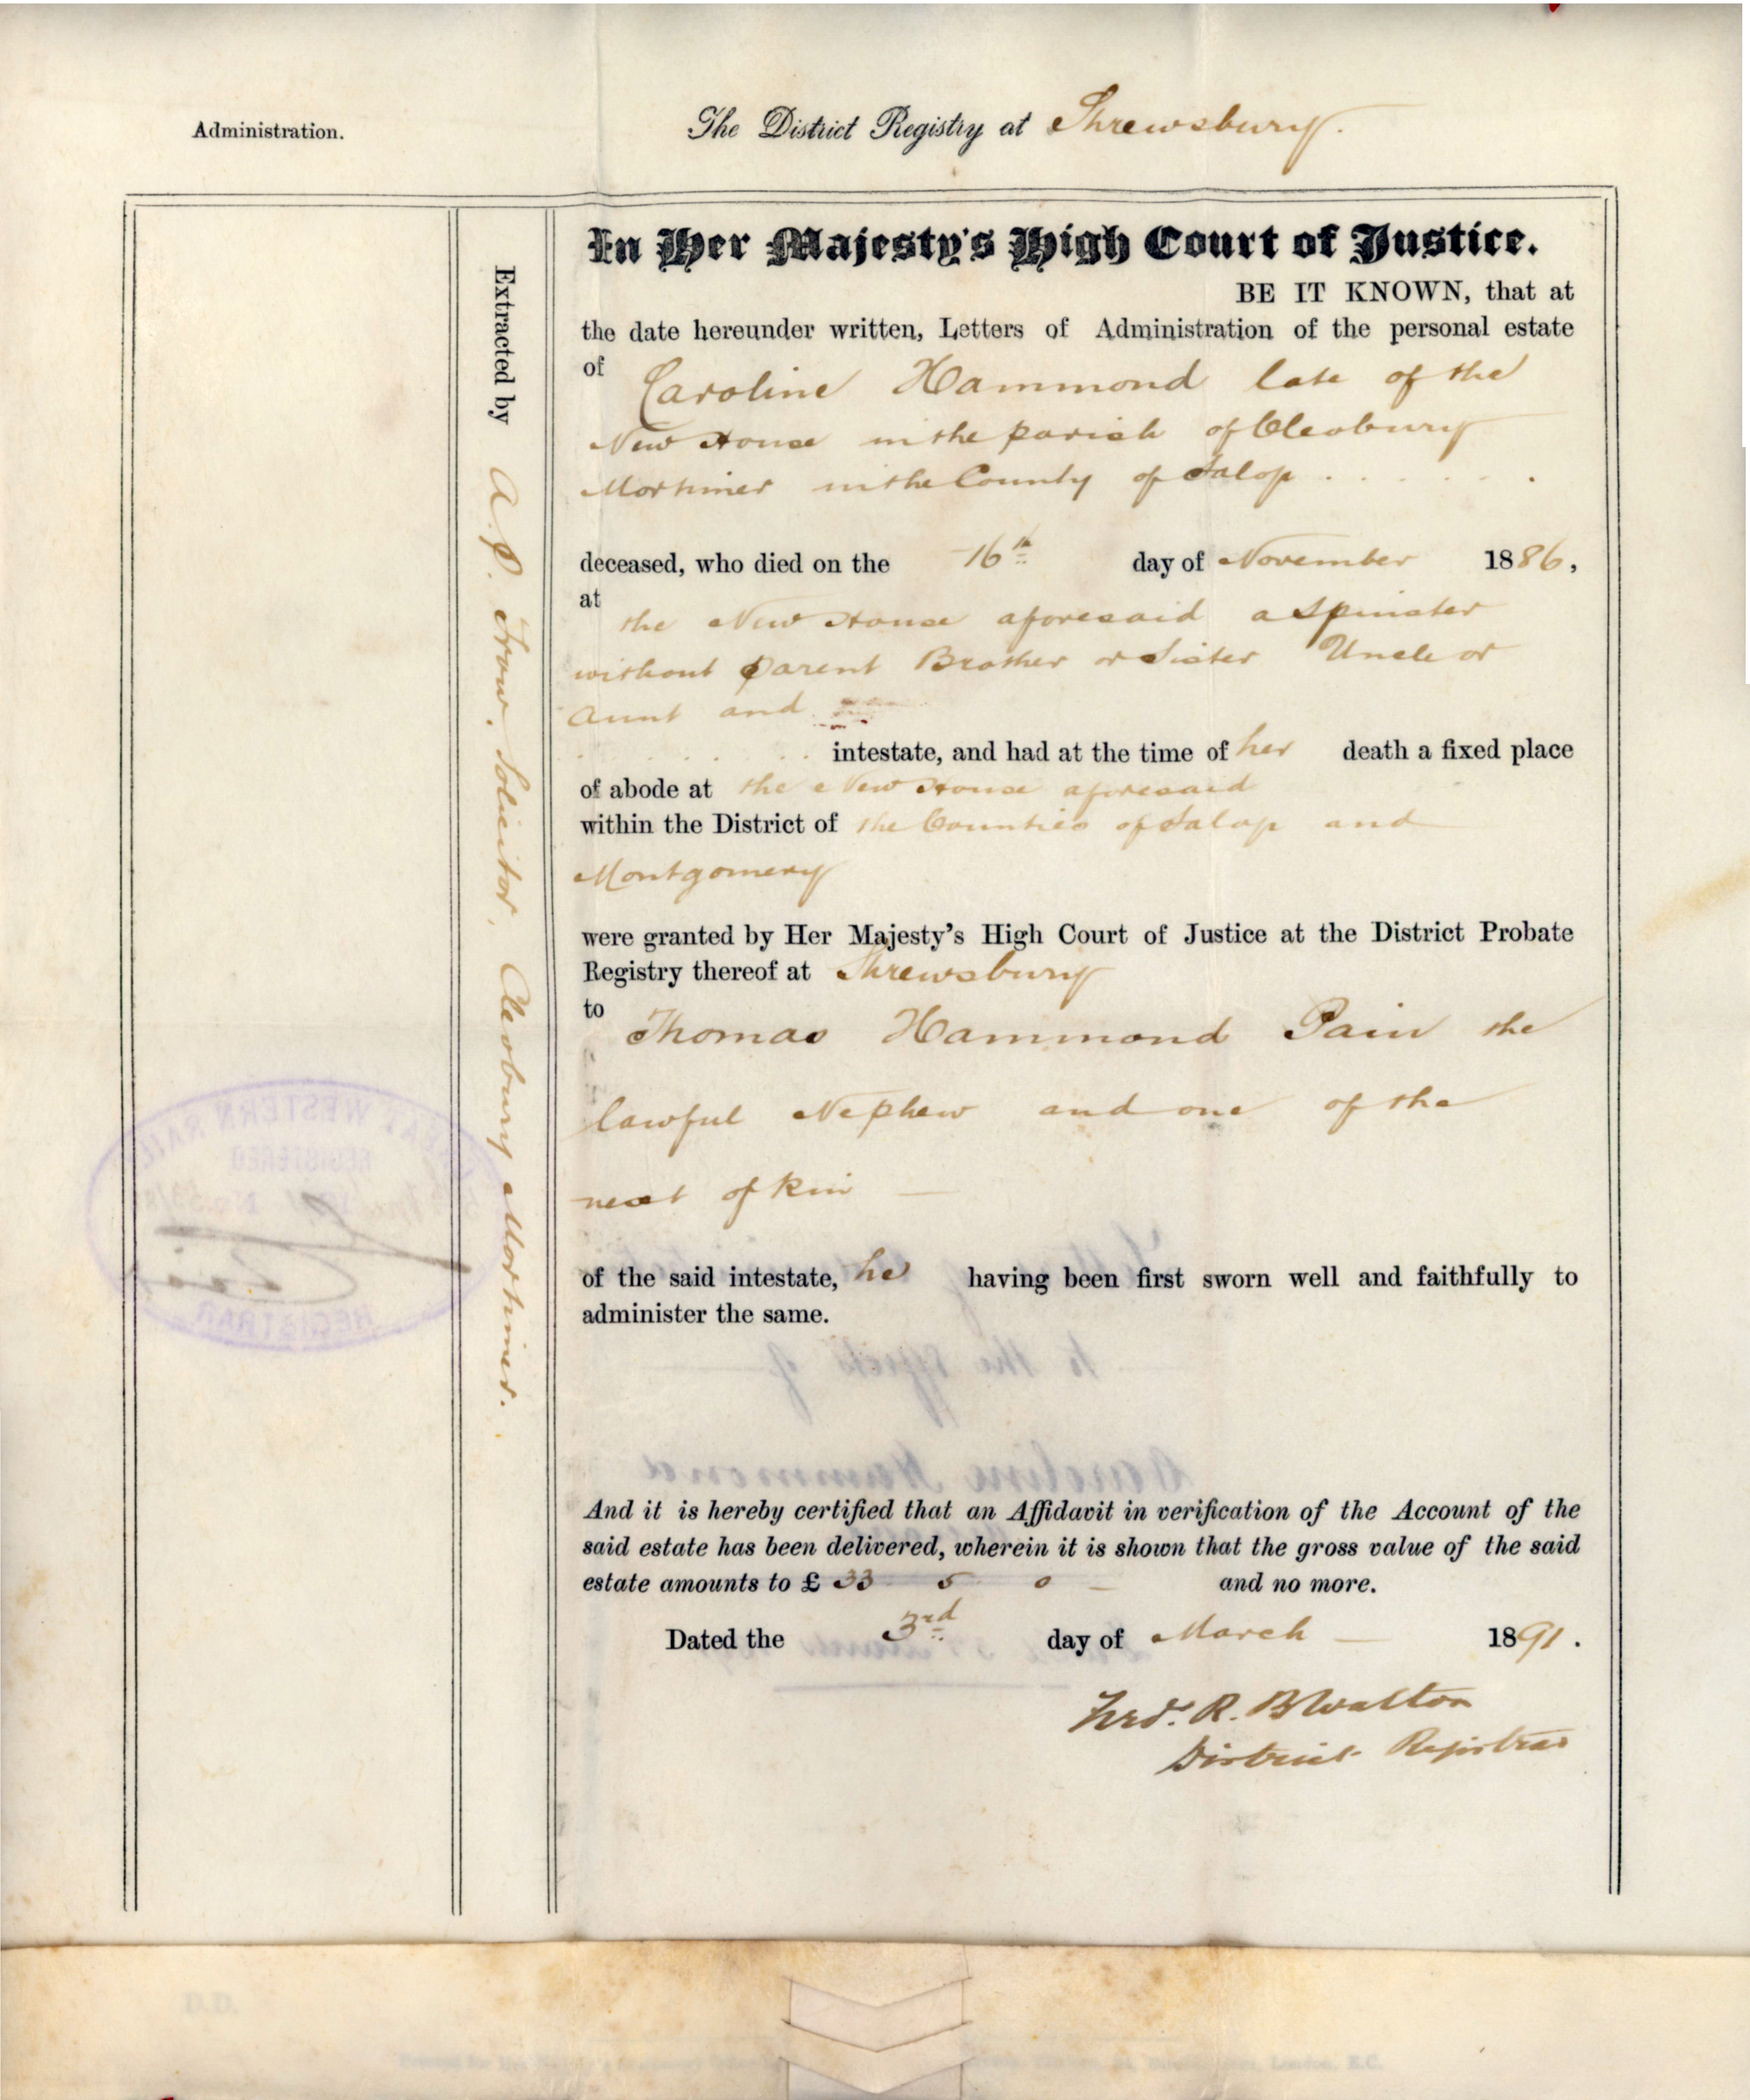 Administration.
The District Registry at Shrewsbury.
In Her Majesty's High Court of Justice.
BE IT KNOWN, that at
the date hereunder written, Letters of Administration of the personal estate
of Caroline Hammond late of the
New House in the parish of Cleobury
Mortimer in the County of Salop . . . . . .
deceased, who died on the 16th day of November 1886,
at the New House aforesaid a Spinster
without Parent Brother or Sister Uncle or
Aunt and
intestate, and had at the time of her death a fixed place
of abode at the New House aforesaid
within the District of the Counties of Salop and
Montgomery
were granted by Her Majesty's High Court of Justice at the District Probate
Registry thereof at Shrewsbury
to Thomas Hammond Pain the
lawful Nephew and one of the
next of kin —
of the said intestate, he having been first sworn well and faithfully to
administer the same.
to the effects of
Caroline Hammond
And it is hereby certified that an Affidavit in verification of the Account of the
said estate has been delivered, wherein it is shown that the gross value of the said
estate amounts to £ 33 5 0 — and no more.
Dated the 3rd day of March — 1891.
Fredk. R. B Walton
District Registrar
Extracted by A. P. Trow, Solicitor, Cleobury Mortimer.
GREAT WESTERN RAIL
REGISTERED
REGISTRAR
D.D.
London, E.C.